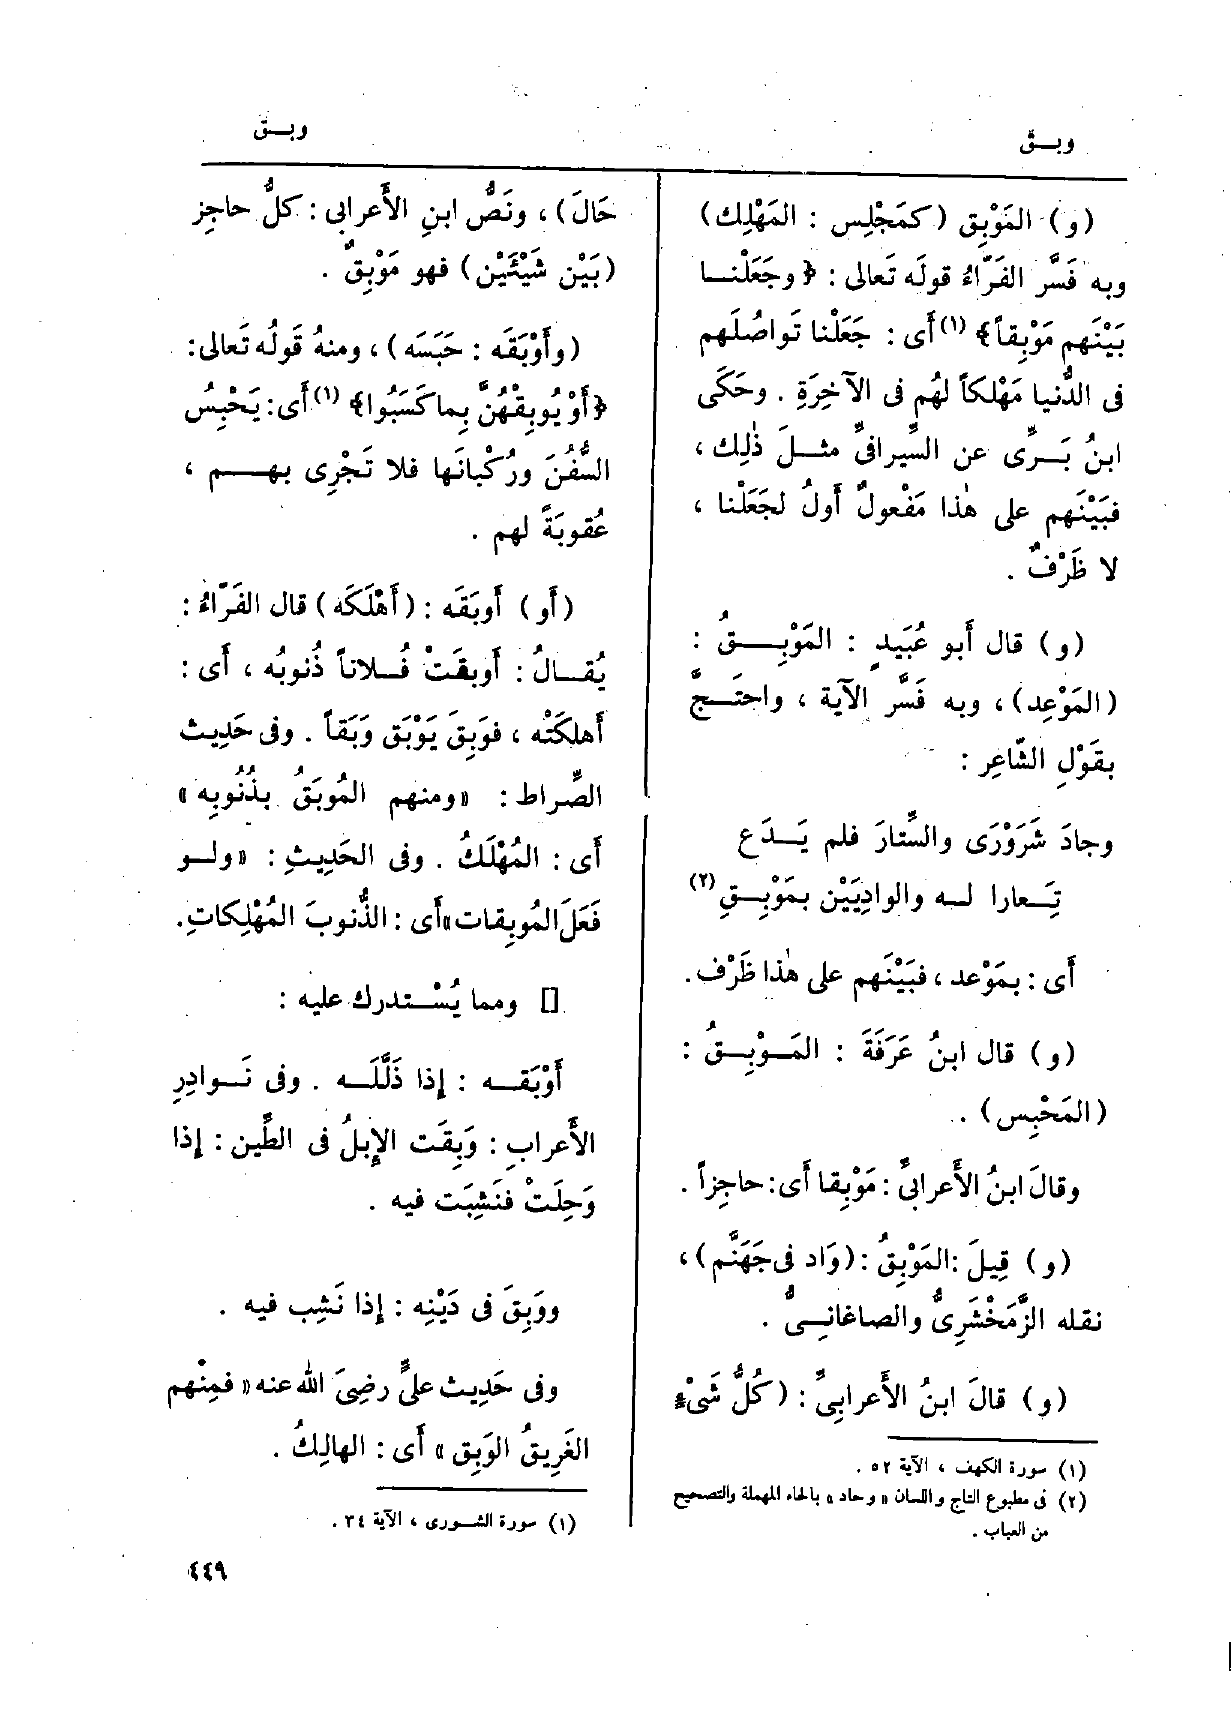 وبــق
وبــق
(و) المَوْبِق (كمَجْلِس : المَهْلِك)
وبه فَسَّر الفَرّاءُ قولَه تَعالى : ﴿وجَعَلْنــا
بَيْنَهم مَوْبِقاً﴾ (١) أى : جَعَلْنا تَواصُلَهم
فى الدُّنيا مَهْلكاً لهُم فى الآخِرَةِ . وحَكَى
ابنُ بَــرِّى عن السِّيرافىِّ مثــلَ ذٰلِك ،
فبَيْنَهم على هٰذا مَفْعولٌ أولُ لجَعَلْنا ،
لا ظَرْفٌ .
(و) قال أبو عُبَيدٍ : المَوْبِــقُ :
(المَوْعِد) ، وبه فَسَّر الآية ، واحتَــجَّ
بقَوْلِ الشّاعِر :
وجادَ شَرَوْرَى والسِّتارَ فلم يَــدَع
تِــعارا لــه والوادِيَيْن بمَوْبِــقِ (٢)
أى : بمَوْعد ، فبَيْنَهم على هٰذا ظَرْف .
(و) قال ابنُ عَرَفَةَ : المَــوْبِــقُ :
(المَحْبِس) .
وقالَ ابنُ الأَعرابىِّ : مَوْبِقا أى : حاجِزاً .
(و) قِيلَ : المَوْبِقُ : (وَاد فى جَهَنَّم) ،
نقله الزَّمَخْشَرِىُّ والصاغانِــىُّ .
(و) قالَ ابنُ الأَعرابِىِّ : (كُلُّ شَىْءٍ
(١) سورة الكهف ، الآية ٥٢ .
(٢) فى مطبوع التاج واللسان « وحاد » بالحاء المهملة والتصحيح
من العباب .
حَالَ) ، ونَصُّ ابنِ الأَعرابى : كلُّ حاجِز
(بَيْن شَيْئَيْن) فهو مَوْبِقٌ .
(وأَوْبَقَه : حَبَسَه) ، ومنهُ قَولُه تَعالى :
﴿أَوْ يُوبِقْهُنَّ بِما كَسَبُوا﴾ (١) أى : يَحْبِسُ
السُّفُنَ ورُكْبانَها فلا تَجْرِى بهــم ،
عُقوبَةً لهم .
(أو) أوبَقَه : (أَهْلَكَه) قال الفَرّاءُ :
يُقــالُ : أوبقَتْ فُــلاناً ذُنوبُه ، أى :
أهلكَتْه ، فوَبِقَ يَوْبَق وَبَقاً . وفى حَدِيث
الصِّراط : «ومنهم المُوبَقُ بذُنُوبِه»
أى : المُهْلَكُ . وفى الحَدِيثِ : «ولــو
فَعَلَ المُوبِقات» أى : الذُّنوبَ المُهْلِكاتِ .
[] ومما يُسْــتدرك عليه :
أَوْبَقــه : إذا ذَلَّلَــه . وفى نَــوادِرِ
الأَعرابِ : وَبِقَت الإِبلُ فى الطِّين : إذا
وَحِلَتْ فنَشِبَت فيه .
ووَبِقَ فى دَيْنِه : إذا نَشِب فيه .
وفى حَدِيث علىٍّ رضِىَ الله عنه « فمِنْهم
الغَرِيقُ الوَبِق » أى : الهالِكُ .
(١) سورة الشــورى ، الآية ٣٤ .
٤٤٩